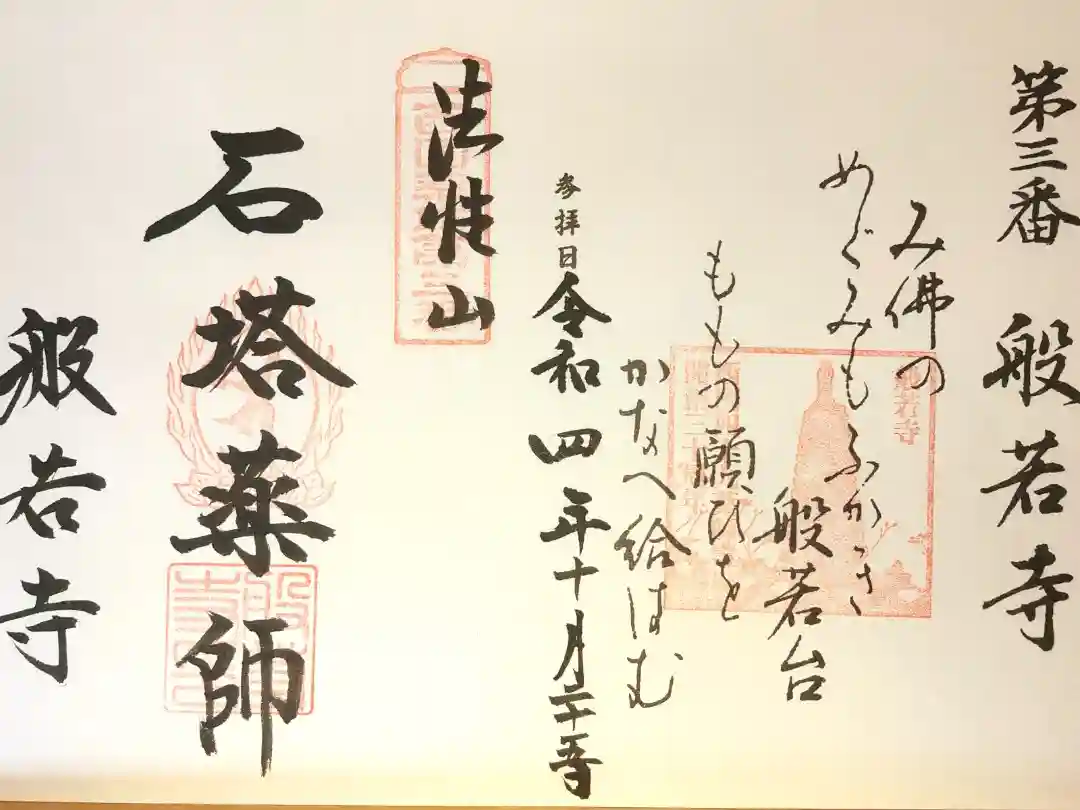 第三番 般若寺
み佛の
めぐみもふかき
般若台
ももの願ひを
かなへ給はむ
参拝日 令和四年十月二十五日
法性山
石塔薬師
般若寺
般若寺